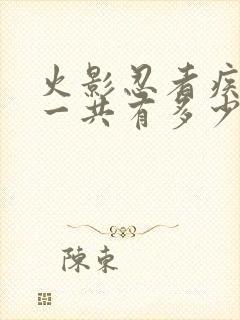 火影忍者疾
一共有多少
陳束